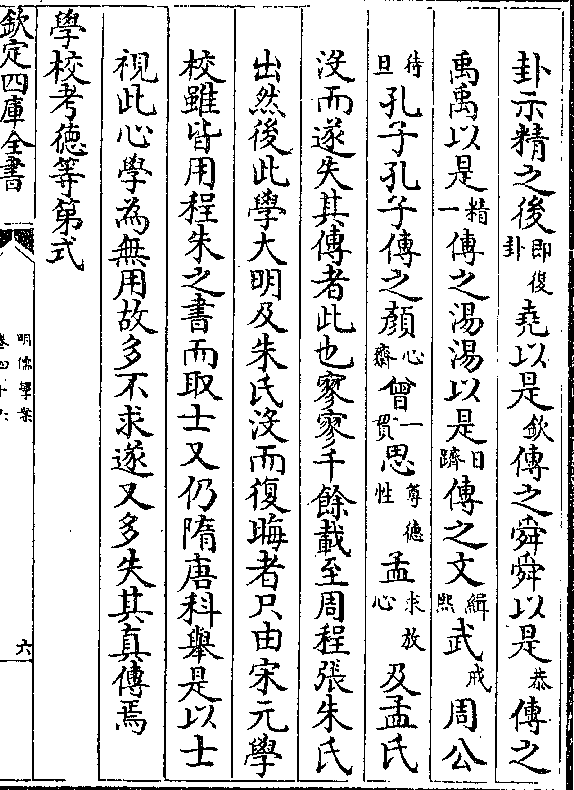 卦示精之後即復卦堯以是欽傳之舜舜以是恭傳之
禹禹以是精一傳之湯湯以是日躋傳之文緝熙武戒周公
待旦孔子孔子傳之顏心齋曾一貫思尊德性孟求放心及孟氏
沒而遂失其傳者此也寥寥千餘載至周程張朱氏
出然後此學大明及朱氏沒而復晦者只由宋元學
校雖皆用程朱之書而取士又仍隋唐科舉是以士
視此心學為無用故多不求遂又多失其真傳焉
學校考德等第式
欽定四庫全書
明儒學案
六